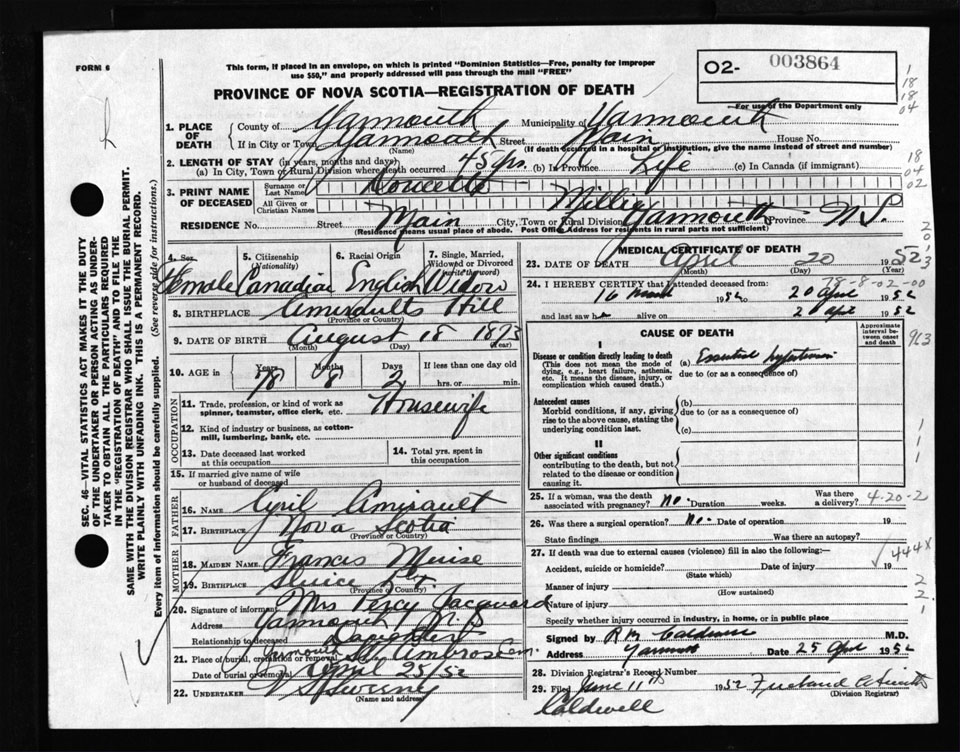 FORM 6
This form, if placed in an envelope, on which is printed "Dominion Statistics—Free, penalty for improper
use $50," and properly addressed will pass through the mail "FREE"
PROVINCE OF NOVA SCOTIA—REGISTRATION OF DEATH
O2- 003864
For use of the Department only
1. PLACE OF DEATH
County of Yarmouth Municipality of Yarmouth
If in City or Town Yarmouth Street Main House No.
(Name) (If death occurred in a hospital or institution, give the name instead of street and number)
2. LENGTH OF STAY (in years, months and days)
(a) In City, Town or Rural Division where death occurred 45 yrs. (b) In Province Life (c) In Canada (if immigrant)
3. PRINT NAME OF DECEASED
Surname or Last Name Doucette
All Given or Christian Names Millie
RESIDENCE No. Street Main City, Town or Rural Division Yarmouth Province N.S.
(Residence means usual place of abode. Post Office Address for residents in rural parts not sufficient)
4. Sex Female
5. Citizenship (Nationality) Canadian
6. Racial Origin English
7. Single, Married, Widowed or Divorced (write the word) Widow
8. BIRTHPLACE Amiraults Hill
(Province or Country)
9. DATE OF BIRTH August 18 1873
(Month) (Day) (Year)
10. AGE in Years 78 Months 8 Days 2 If less than one day old hrs. or min.
OCCUPATION
11. Trade, profession, or kind of work as spinner, teamster, office clerk, etc. Housewife
12. Kind of industry or business, as cotton-mill, lumbering, bank, etc.
13. Date deceased last worked at this occupation
14. Total yrs. spent in this occupation
15. If married give name of wife or husband of deceased
FATHER
16. NAME Cyril Amirault
17. BIRTHPLACE Nova Scotia
(Province or Country)
MOTHER
18. MAIDEN NAME Francis Muise
19. BIRTHPLACE Sluice Pt.
(Province or Country)
20. Signature of informant Mrs Percy Jacquard
Address Yarmouth N.S.
Relationship to deceased Daughter
21. Place of burial, cremation or removal Yarmouth St. Ambrose Cem.
Date of burial or removal April 25/52
22. UNDERTAKER V S Sweeny
(Name and address)
MEDICAL CERTIFICATE OF DEATH
23. DATE OF DEATH April 20 1952
(Month) (Day) (Year)
78-8-02-00
24. I HEREBY CERTIFY that I attended deceased from:
16 March 1952 to 20 April 1952
and last saw h alive on 20 Apr 1952
CAUSE OF DEATH
Approximate interval between onset and death
I
Disease or condition directly leading to death
(This does not mean the mode of dying, e.g., heart failure, asthenia, etc. It means the disease, injury, or complication which caused death.)
(a) Essential hypertension
due to (or as a consequence of)
Antecedent causes
Morbid conditions, if any, giving rise to the above cause, stating the underlying condition last.
(b)
due to (or as a consequence of)
(c)
II
Other significant conditions
contributing to the death, but not related to the disease or condition causing it.
25. If a woman, was the death associated with pregnancy? No Duration weeks. Was there a delivery? 4-20-2
26. Was there a surgical operation? No. Date of operation 19
State findings Was there an autopsy?
27. If death was due to external causes (violence) fill in also the following:—
444X
Accident, suicide or homicide? Date of injury 19
(State which)
Manner of injury
(How sustained)
Nature of injury
Specify whether injury occurred in industry, in home, or in public place
Signed by R M Caldwell M.D.
Address Yarmouth Date 25 April 1952
28. Division Registrar's Record Number
29. Filed June 11th 1952
(Division Registrar)
Caldwell
SEC. 46—VITAL STATISTICS ACT MAKES IT THE DUTY
OF THE UNDERTAKER OR PERSON ACTING AS UNDER-
TAKER TO OBTAIN ALL THE PARTICULARS REQUIRED
IN THE "REGISTRATION OF DEATH" AND TO FILE THE
SAME WITH THE DIVISION REGISTRAR WHO SHALL ISSUE THE BURIAL PERMIT.
WRITE PLAINLY WITH UNFADING INK. THIS IS A PERMANENT RECORD.
Every item of information should be carefully supplied. (See reverse side for instructions.)
1
18
18
04
18
04
02
2013
963
1
1
1
2
2
1